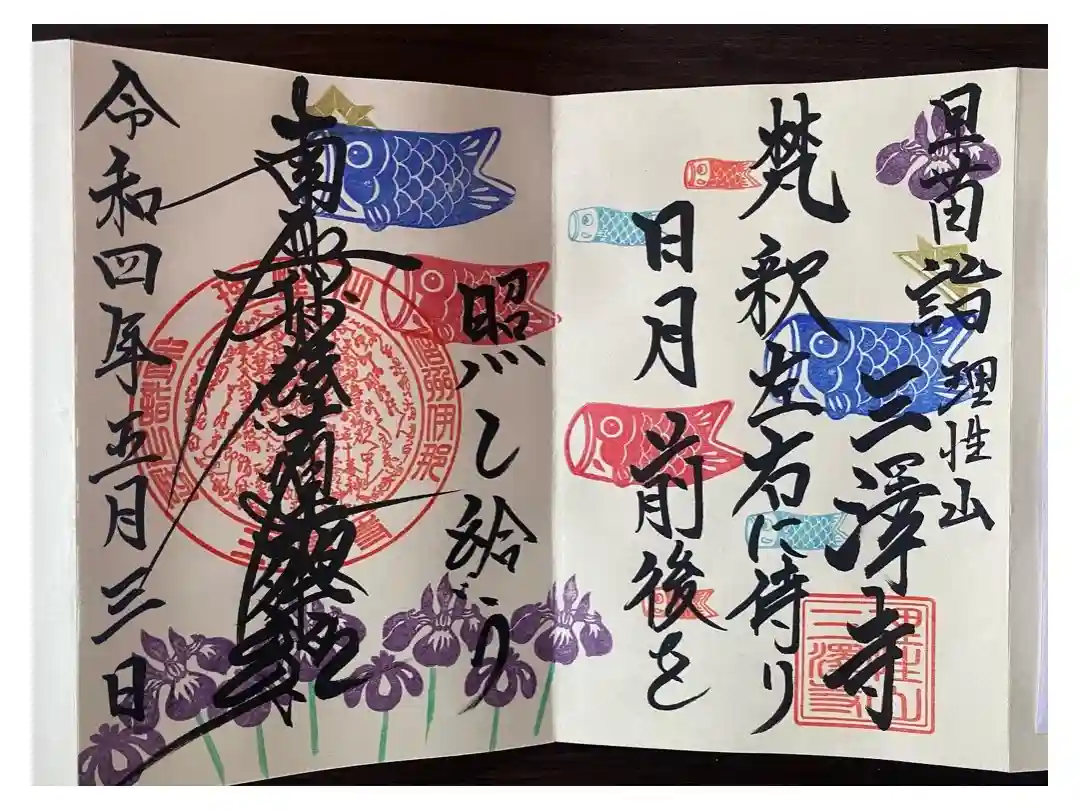 早苗詣 理性山
三澤寺
梵釈左右に侍り
日月前後を
照し給へり
南無妙法蓮華経
令和四年五月三日
理性山
三澤寺